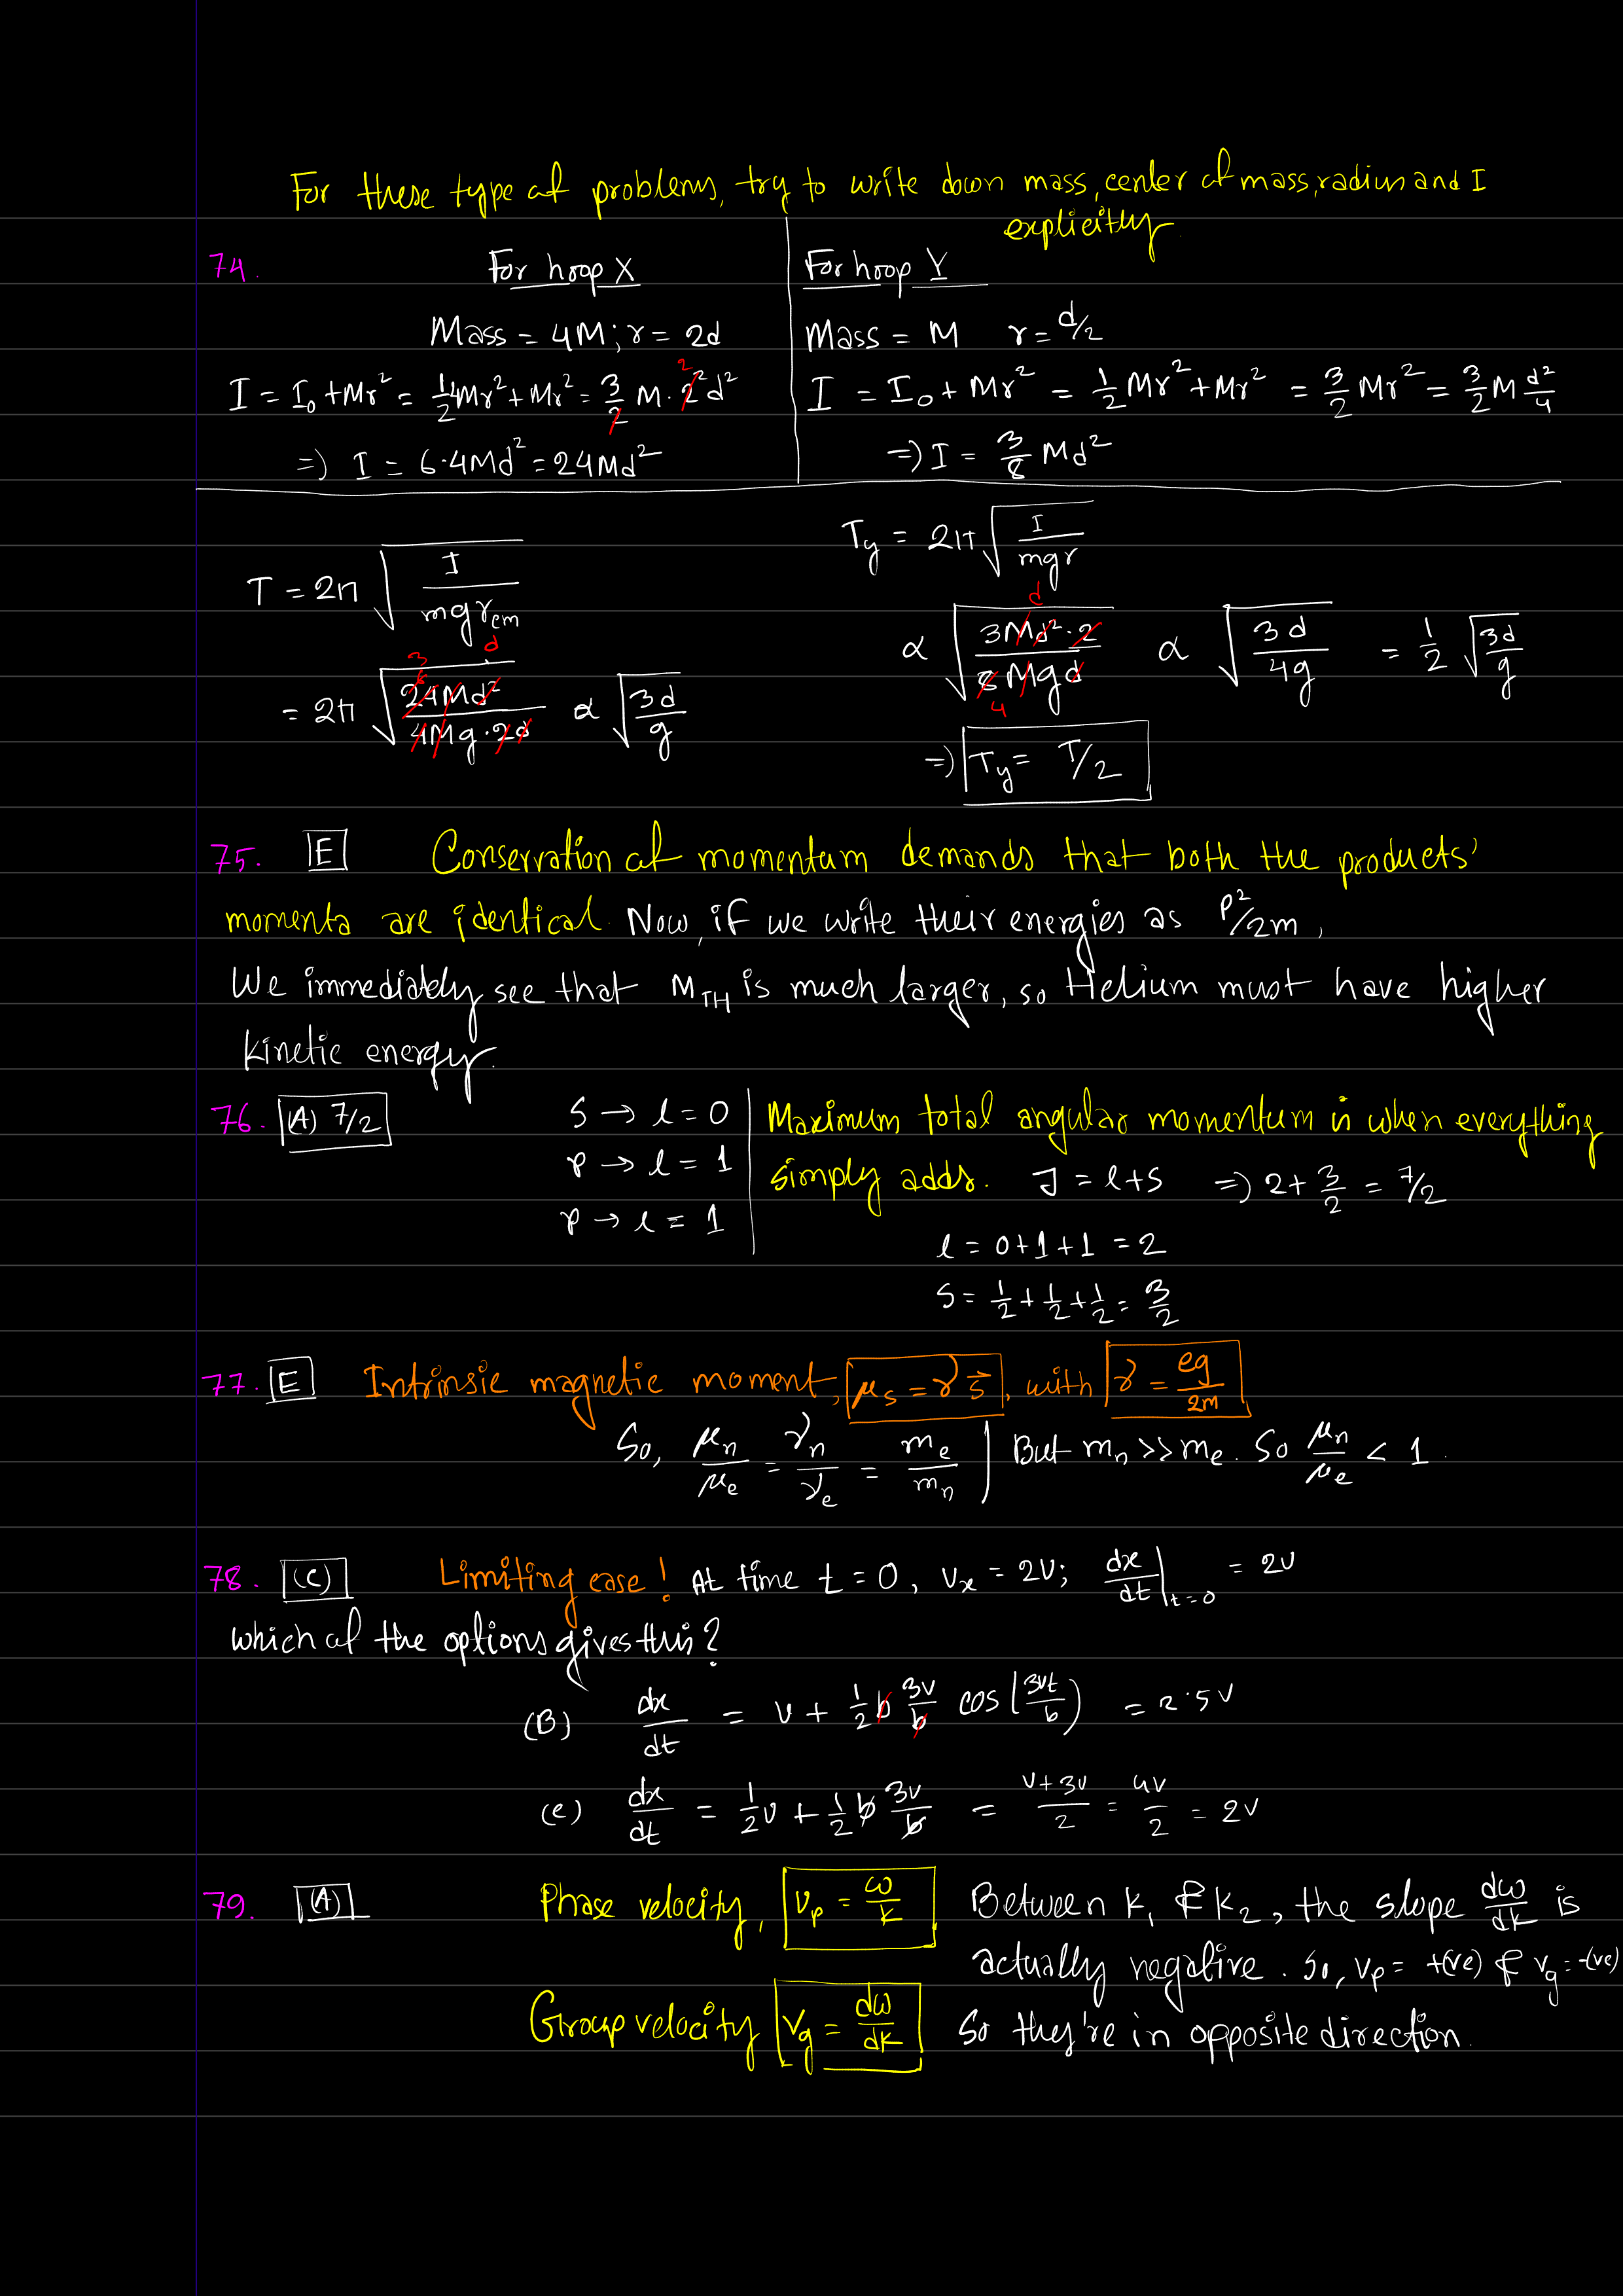 For these type of problems, try to write down mass, center of mass, radius and I
explicitly.
74. For hoop X
For hoop Y
Mass = 4M ; r = 2d
Mass = M r = d/2
I = I₀ + Mr² = ½4Mr² + Mr² = 3/2 M · 2² d² 2
I = I₀ + Mr² = ½Mr² + Mr² = 3/2 Mr² = 3/2 M d²/4
=) I = 6·4Md² = 24Md²
=) I = 3/8 Md²
T = 2π √(I / mg r_cm)
T_y = 2π √(I / mgr)
= 2π √(24Md² / 4Mg·2d) α √(3d/g)
α √(3Md²·2 / 8Mgd) α √(3d/4g) = ½ √(3d/g)
=) T_y = T/2
75. E Conservation of momentum demands that both the products'
momenta are identical. Now, if we write their energies as P²/2m,
We immediately see that M_TH is much larger, so Helium must have higher
kinetic energy.
76. (A) 7/2
S → l = 0
p → l = 1
p → l = 1
Maximum total angular momentum is when everything
simply adds. J = l+s =) 2 + 3/2 = 7/2
l = 0+1+1 = 2
S = ½ + ½ + ½ = 3/2
77. E Intrinsic magnetic moment, μ_s = γ S⃗, with γ = eg/2m
So, μ_n/μ_e = γ_n/γ_e = m_e/m_n But m_n >> m_e. So μ_n/μ_e < 1.
78. (C) Limiting case! At time t = 0, v_x = 2v; dx/dt|t=0 = 2v
which of the options gives this?
(B) dx/dt = v + ½ b 3v/b cos(3vt/b) = 2.5v
(c) dx/dt = ½v + ½ b 3v/b = v+3v/2 = 4v/2 = 2v
79. (A) Phase velocity, v_p = ω/k
Group velocity v_g = dω/dk
Between k₁ & k₂, the slope dω/dk is
actually negative. So, v_p = +(ve) & v_g = -(ve)
So they're in opposite direction.